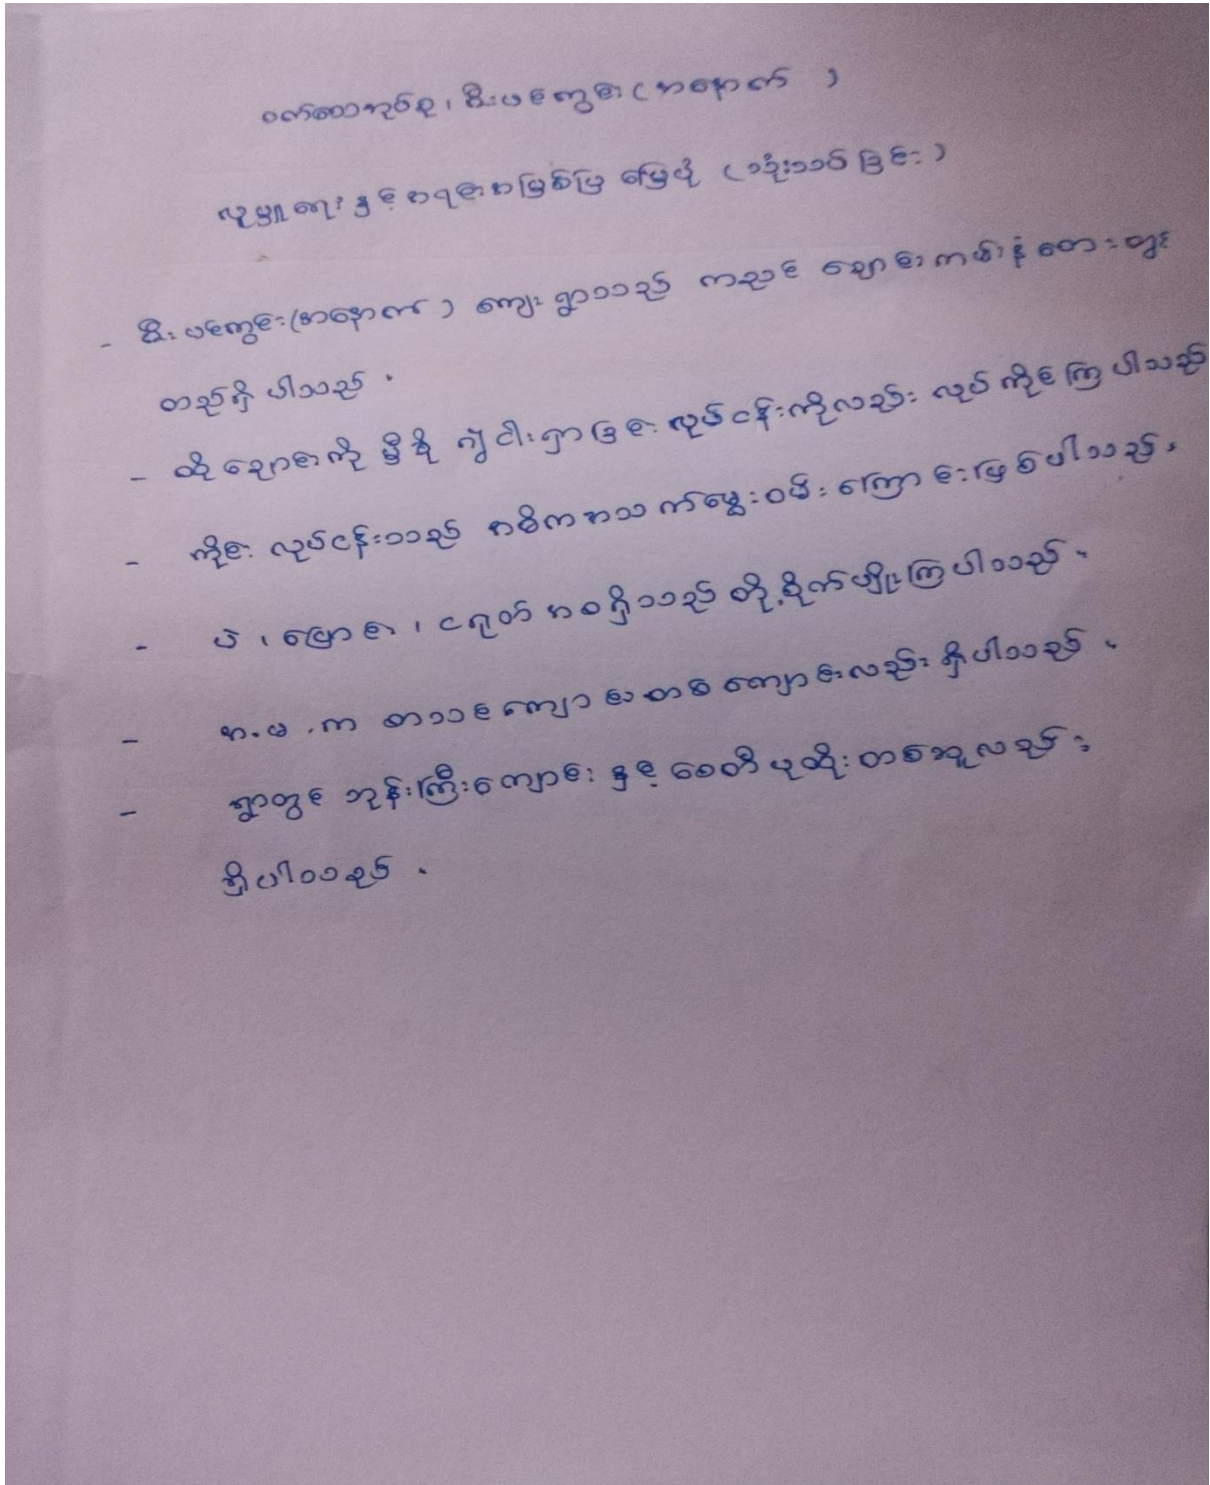 ဝက်တောအုပ်စု၊ စီးပင်ကွင်း(အနောက်)
လူမှုရေးနှင့်အရင်းအမြစ်ပြ မြေပုံ (သုံးသပ်ခြင်း)
- စီးပင်ကွင်း(အနောက်) ကျေးရွာသည် ကညင် ချောင်းကမ်းနံဘေးတွင်
တည်ရှိပါသည်.
- ထိုချောင်းကို မှီ၍ ငါးရှာခြင်း လုပ်ငန်းကိုလည်း လုပ်ကိုင်ကြပါသည်
- ကိုင်း လုပ်ငန်းသည် အဓိကအသက်မွေးဝမ်းကြောင်းဖြစ်ပါသည်.
- ပဲ ၊ ပြောင်း ၊ ငရုတ် အစရှိသည်တို့စိုက်ပျိုးကြပါသည်.
- အ.မ.က စာသင်ကျောင်းတစ်ကျောင်းလည်း ရှိပါသည်.
- ရွာတွင် ဘုန်းကြီးကျောင်း နှင့် စေတီပုထိုးတစ်ဆူလည်း
ရှိပါသည်.